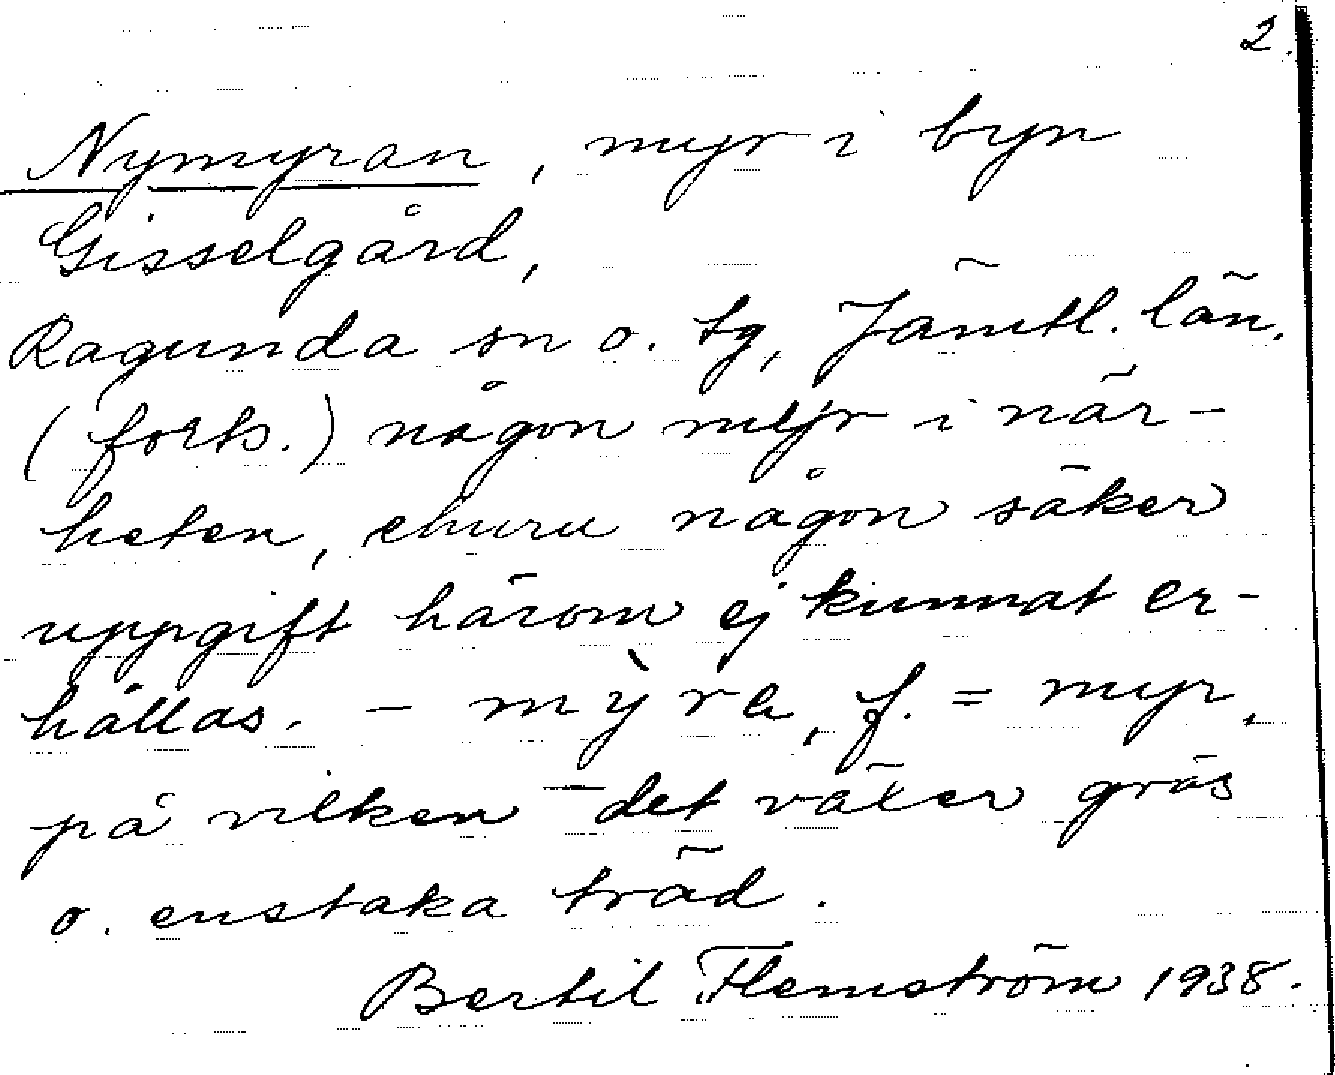 2.
Nymyran, myr i byn
Gisselgård,
Ragunda sn o. tg, Jämtl. län.
(forts.) någon myr i när-
heten, churu någon säker
uppgift härom ej kunnat er-
hållas. - mỳra, f. = myr,
på vilken det växer gräs
o. enstaka träd.
Bertil Flemström 1938.